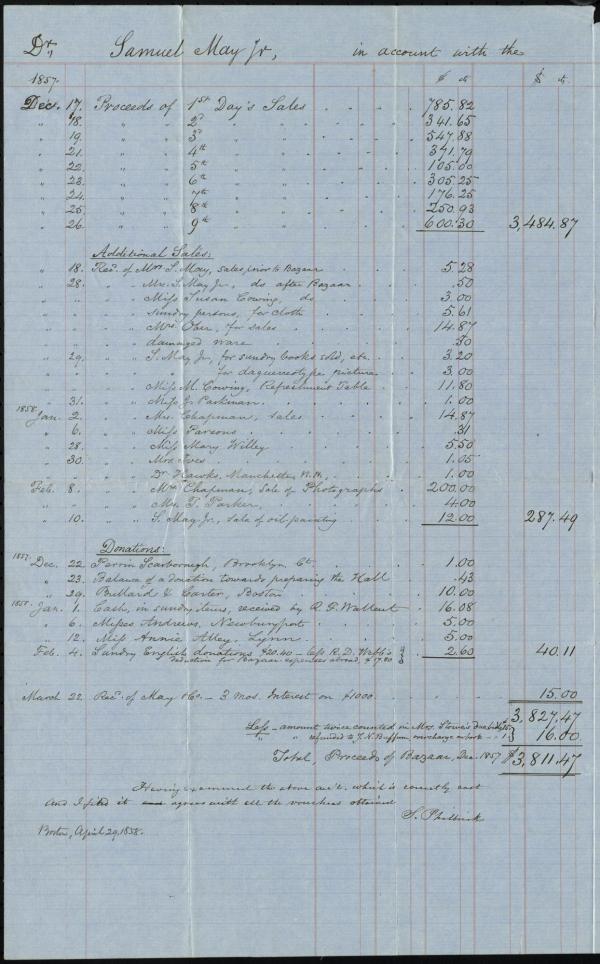 Dr. Samuel May Jr, in account with the
1857. $ ct. $ ct.
Dec. 17. Proceeds of 1st Day's Sales 785.82
" 18. " " 2d " " 341.65
" 19. " " 3d " " 547.88
" 21. " " 4th " " 371.79
" 22. " " 5th " " 105.00
" 23. " " 6th " " 305.25
" 24. " " 7th " " 176.25
" 25. " " 8th " " 250.93
" 26. " " 9th " " 600.30 3,484.87
Additional Sales:
" 18. Recd. of Mrs S. May, sales, prior to Bazaar 5.28
" 28. " " Mrs. S. May Jr., do after Bazaar .50
" " " " Miss Susan Cowing, do 3.00
" " " " Sundry persons, for cloth 5.61
" " " " Mrs. Ober, for sales 14.87
" " " " damaged ware .50
" 29. " " S. May, Jr., for sundry books sold, etc. 3.20
" " " " for daguereotype picture 3.00
" " " " Miss M. Cowing, Refreshment Table 11.80
" 31. " " Miss J. Parkman 1.00
1858. Jan. 2. " " Mrs. Chapman, sales 14.87
" 6. " " Miss Parsons .31
" 28. " " Miss Mary Willey 5.50
" 30. " " Mrs. Ives 1.05
" " " " Dr. Hawks, Manchester N.H., 1.00
Feb. 8. " " Mrs. Chapman, Sale of Photographs 200.00
" " " " Mrs. T. Parker, 4.00
" 10. " " S. May, Jr., Sale of oil-painting 12.00 287.49
Donations:
1857. Dec. 22. Perrin Scarborough, Brooklyn, Ct. 1.00
" 23. Balance of a donation towards preparing the Hall .43
" 29. Bullard & Carter, Boston 10.00
1858. Jan. 1. Cash, in sundry items, received by R. F. Wallcut 16.08
" 6. Misses Andrews, Newburyport 5.00
" 12. Miss Annie Alley, Lynn 5.00
Feb. 4. Sundry English donations $20.40 – less R. D. Webb's
deduction for Bazaar expenses abroad, $17.80 2.60 40.11
March 22. Recd. of May & Co. – 3 mos. Interest on $1000 15.00
3,827.47
Less – amount twice counted in Mrs. Stowe's
" " refunded to J. N. Buffum, overcharge on book 16.00
Total, Proceeds of Bazaar, Dec. 1857 $3,811.47
Having examined the above acct. which is correctly cast
and I find it agrees with all the vouchers obtained
S. Philbrick
Boston, April 29, 1858.